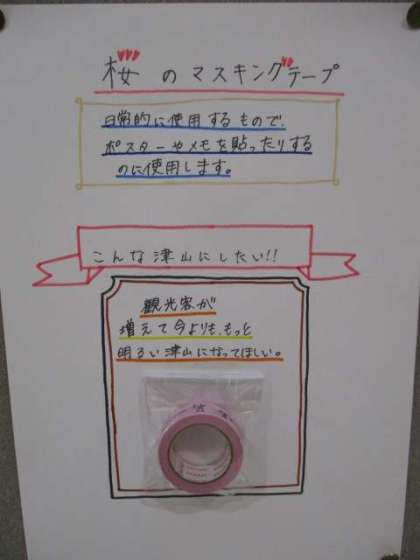 桜のマスキングテープ
日常的に使用するもので、
ポスターやメモを貼ったりする
のに使用します。
こんな津山にしたい!!
観光客が
増えて今よりも、もっと
明るい津山になってほしい。